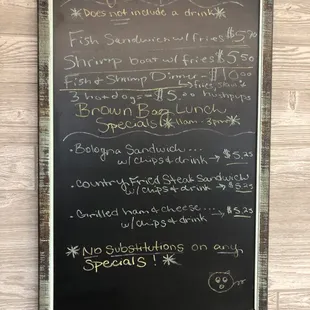 *Does not include a drink*
Fish Sandwich w/ fries $5.70
Shrimp boat w/ fries $5.50
Fish & Shrimp Dinner - $10.00
→ fries, slaw &
3 hotdogs - $5.00 hushpups
Brown Bag Lunch
Specials *11am - 3pm*
• Bologna Sandwich...
w/ chips & drink → $5.25
• Country Fried Steak Sandwich
w/ chips & drink → $5.25
• Grilled ham & cheese...
w/ chips & drink → $5.25
*No Substitutions on any
Specials! *